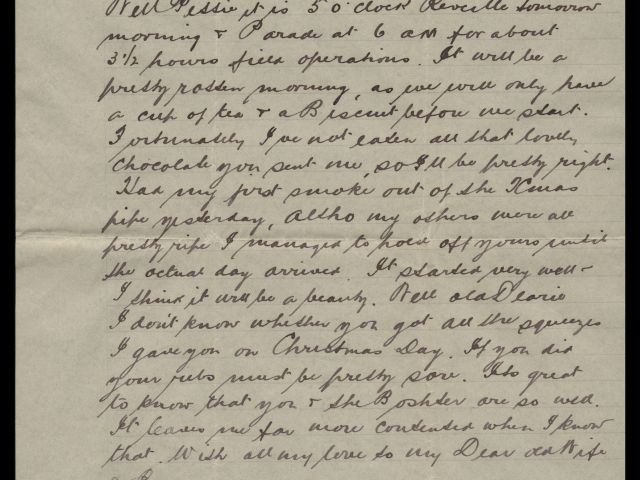 Well Pessie it is 5 o'clock Reveille tomorrow
morning & Parade at 6 am for about
3 1/2 hours field operations. It will be a
pretty rotten morning, as we will only have
a cup of tea & a Biscuit before we start.
Fortunately I've not eaten all that lovely
chocolate you sent me, so I'll be pretty right.
Had my first smoke out of the Xmas
pipe yesterday, altho my others were all
pretty ripe I managed to hold off yours until
the actual day arrived. It started very well -
I think it will be a beauty. Well old Dearie
I don't know whether you got all the squeezes
I gave you on Christmas Day. If you did
your ribs must be pretty sore. Its great
to know that you & the Boshter are so well.
It leaves me far more contented when I know
that. With all my love to my Dear old Wife